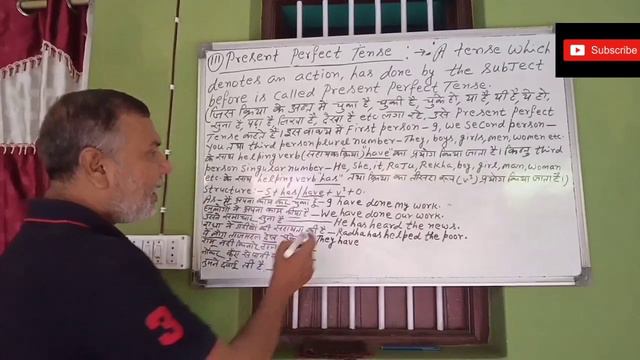 (iii) Present Perfect Tense :→ A tense which
denotes an action, has done by the subject
before is called Present Perfect Tense.
(जिस क्रिया के अन्त में चुका है, चुकी है, चुके हो, या है, यी है, ये हो,
चुना है, पढ़ा है, लिखा है, देखा है etc लगा रहे, उसे Present Perfect
Tense कहते हैं। इस वाक्य में First person - I, we Second person -
you तथा third person plural number - They, boys, girls, men, women etc.
के साथ helping verb (सहायक क्रिया) have का प्रयोग किया जाता है। किन्तु third
person Singular number - He, She, it, Raju, Rekha, boy, girl, man, woman
etc. के साथ "helping verb has" तथा क्रिया का तीसरा रूप (V³) प्रयोग किया जाता है।)
Structure:- S + has/have + V³ + O.
As - मैं अपना काम कर चुका हूँ - I have done my work.
अपना काम किया है - We have done our work.
उसने समाचार सुना है - He has heard the news.
राधा ने गरीबों की सहायता की है - Radha has helped the poor.
ताजमहल देख They have
Subscribe